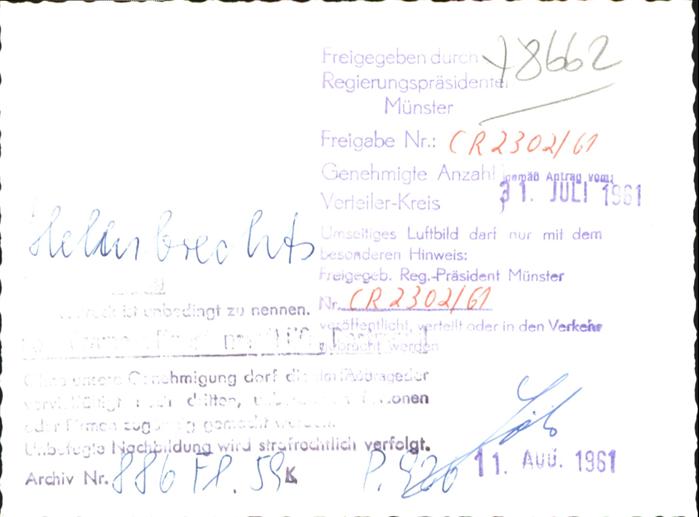 Freigegeben durch 48662
Regierungspräsidenten
Münster
Freigabe Nr.: CR2302/61
Genehmigte Anzahl gemäß Antrag vom:
Verteiler-Kreis 31. JULI 1961
Umseitiges Luftbild darf nur mit dem
besonderen Hinweis:
Freigegeb. Reg.-Präsident Münster
Nr. CR2302/61
veröffentlicht, verteilt oder in den Verkehr
gebracht werden
Helmbrechts
ist unbedingt zu nennen.
Ohne unsere Genehmigung darf
vervielfältigt noch dritten,
oder Firmen zugängig gemacht werden.
Unbefugte Nachbildung wird strafrechtlich verfolgt.
Archiv Nr. 886 Fl. 59 K P. 420
11. AUG. 1961